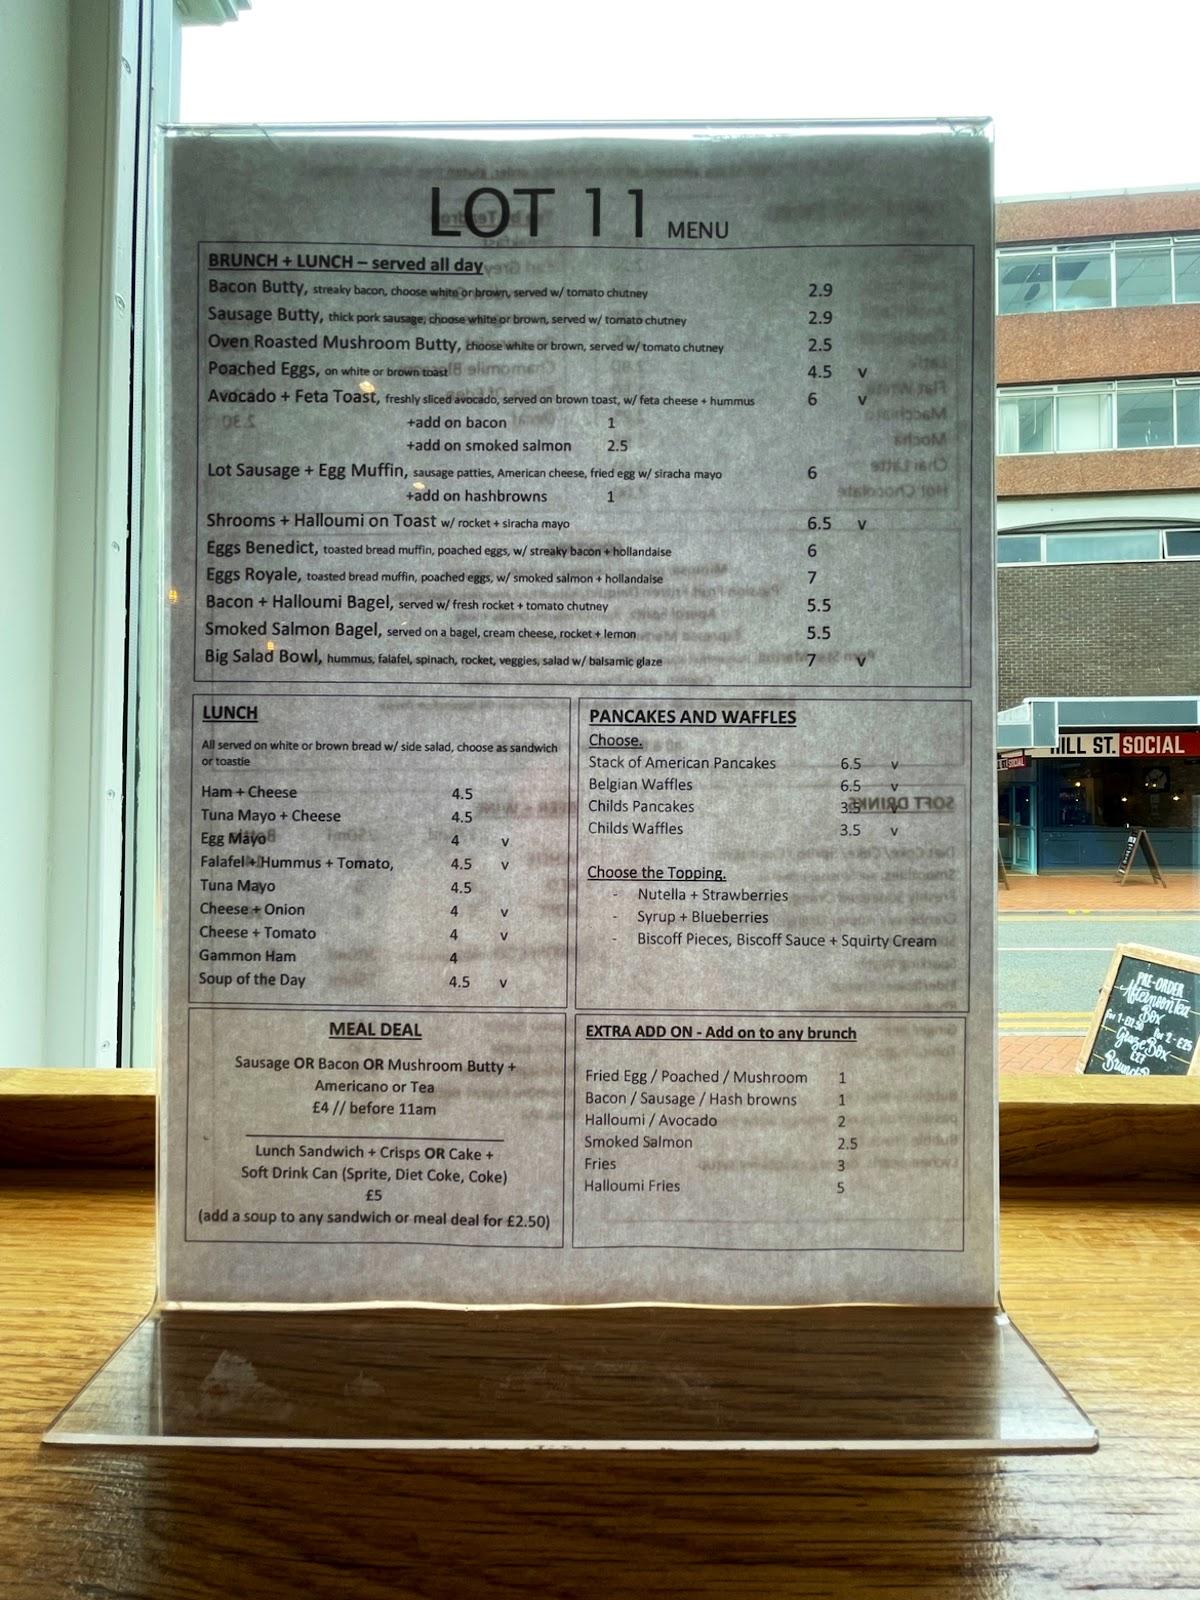 LOT 11 MENU
BRUNCH + LUNCH – served all day
Bacon Butty, streaky bacon, choose white or brown, served w/ tomato chutney 2.9
Sausage Butty, thick pork sausage, choose white or brown, served w/ tomato chutney 2.9
Oven Roasted Mushroom Butty, choose white or brown, served w/ tomato chutney 2.5
Poached Eggs, on white or brown toast 4.5 v
Avocado + Feta Toast, freshly sliced avocado, served on brown toast, w/ feta cheese + hummus 6 v
+add on bacon 1
+add on smoked salmon 2.5
Lot Sausage + Egg Muffin, sausage patties, American cheese, fried egg w/ siracha mayo 6
+add on hashbrowns 1
Shrooms + Halloumi on Toast w/ rocket + siracha mayo 6.5 v
Eggs Benedict, toasted bread muffin, poached eggs, w/ streaky bacon + hollandaise 6
Eggs Royale, toasted bread muffin, poached eggs, w/ smoked salmon + hollandaise 7
Bacon + Halloumi Bagel, served w/ fresh rocket + tomato chutney 5.5
Smoked Salmon Bagel, served on a bagel, cream cheese, rocket + lemon 5.5
Big Salad Bowl, hummus, falafel, spinach, rocket, veggies, salad w/ balsamic glaze 7 v
LUNCH
All served on white or brown bread w/ side salad, choose as sandwich
or toastie
Ham + Cheese 4.5
Tuna Mayo + Cheese 4.5
Egg Mayo 4 v
Falafel + Hummus + Tomato, 4.5 v
Tuna Mayo 4.5
Cheese + Onion 4 v
Cheese + Tomato 4 v
Gammon Ham 4
Soup of the Day 4.5 v
PANCAKES AND WAFFLES
Choose.
Stack of American Pancakes 6.5 v
Belgian Waffles 6.5 v
Childs Pancakes 3.5 v
Childs Waffles 3.5 v
Choose the Topping.
- Nutella + Strawberries
- Syrup + Blueberries
- Biscoff Pieces, Biscoff Sauce + Squirty Cream
MEAL DEAL
Sausage OR Bacon OR Mushroom Butty +
Americano or Tea
£4 // before 11am
Lunch Sandwich + Crisps OR Cake +
Soft Drink Can (Sprite, Diet Coke, Coke)
£5
(add a soup to any sandwich or meal deal for £2.50)
EXTRA ADD ON - Add on to any brunch
Fried Egg / Poached / Mushroom 1
Bacon / Sausage / Hash browns 1
Halloumi / Avocado 2
Smoked Salmon 2.5
Fries 3
Halloumi Fries 5
HILL ST. SOCIAL
PRE-ORDER
Afternoon Tea
Box
Graze Box